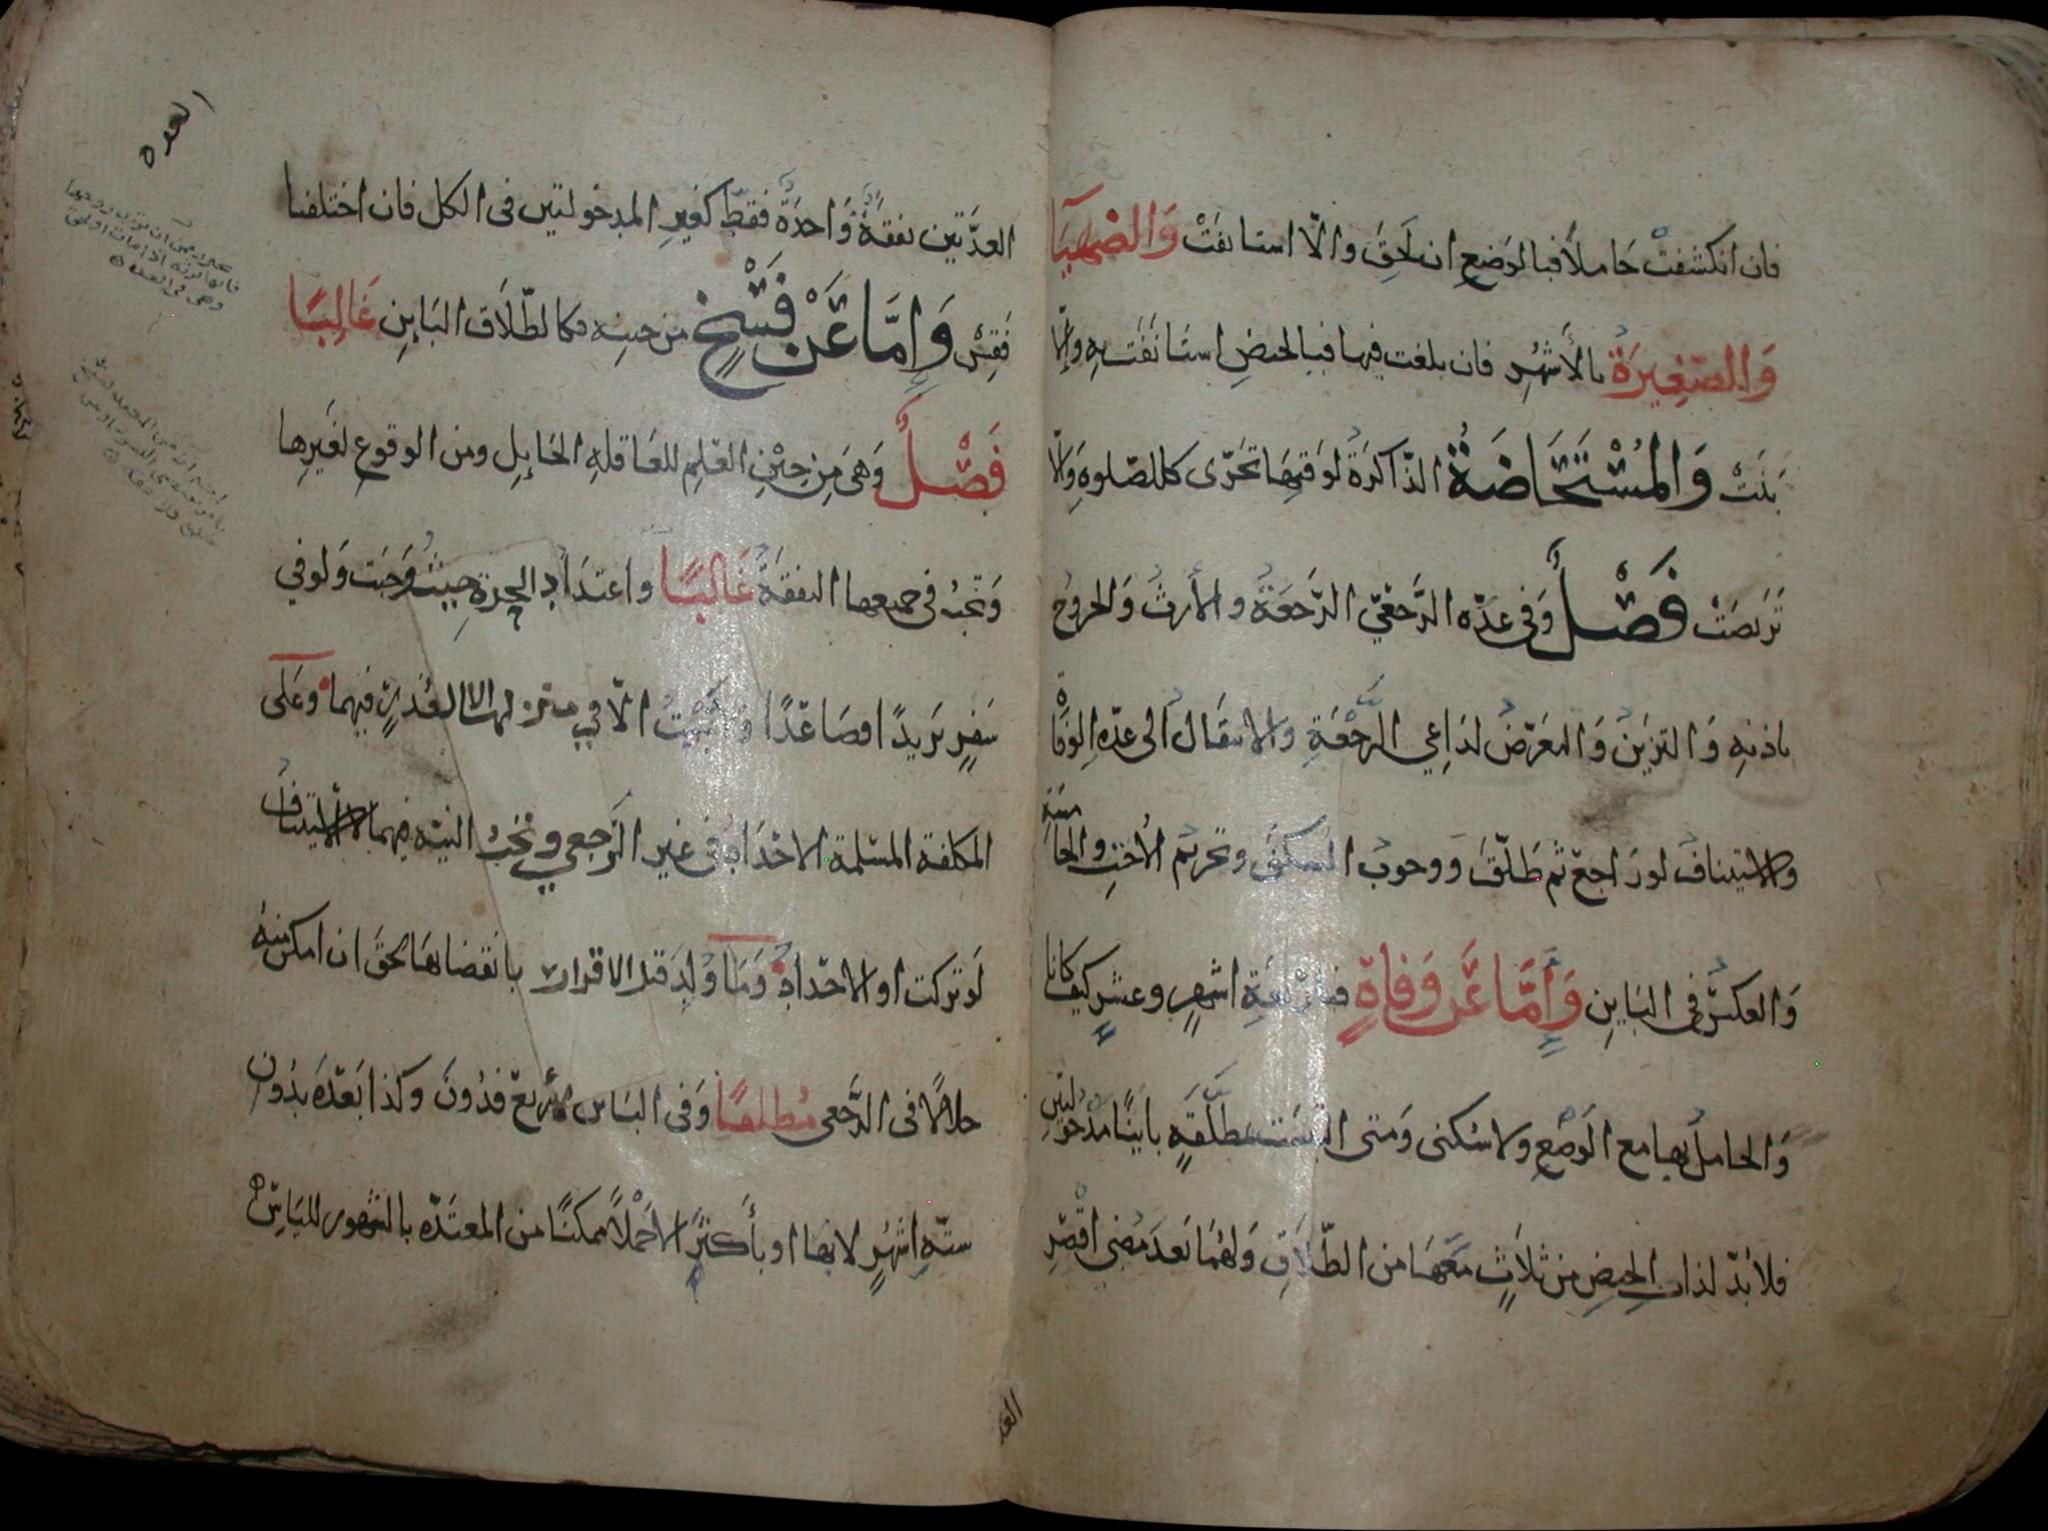 فان انكشفت حاملا فبالوضع ان لحق والا استانفت وَالضهيآ
وَالصّغِيرَةُ بالأشهُرِ فان بلغت فيها فبالحيضِ استَانفَت بهِ وإلّا
بَنَتْ وَالمُسْتَحَاضَةُ الذّاكرَةُ لوَقتِهَا تَحَرّى كالصّلوهِ وَالا
تَرَبصَتْ فَصْلٌ وَفى عدّهِ الرَّجعيّ الرَّجعَةُ والارثُ وَالخروجُ
باذنهِ وَالتزيّنُ وَالتعرّضُ لدَاعِي الرَّجْعَةِ والانتقَالُ الى عدّهِ الوَفَاةِ
والاستينافُ لورَاجعَ ثم طَلّقَ ووجوبُ السكنى وتحريم الأُختِ والخامسَةِ
وَالعكسُ فى البَاينِ وَأِمَّا عَن وَفاةٍ فبأربعَةِ اشهرٍ وعشرٍ كيفَ كانا
وَالحاملُ بها مع الوَضعِ ولا سُكنى وَمتى التبسَت مطلّقةٍ باينًا مدخولتينِ
فلا بُدّ لذات الحيضِ من ثلَاثٍ مَعَهَا من الطّلَاقِ وَلهُمَا بَعدَ مُضى اقْصَرِ
العد
العدّتين نفقهُ وَاحدَةٌ فقط كغيرِ المدخولتين فى الكل فان اختلفتا
فَقِسْ وَإِمَّا عَنْ فَسْخٍ من حينه فكالطّلَاق البَاينِ غَالِبًا
فَصْلٌ وَهىَ مِن حِيْنِ العِلمِ للعَاقلهِ الحَايلِ ومن الوقوعِ لغَيرِها
وَتجبُ فى جميعها النفقةُ غَالبًا واعتدَادُ الحرةِ حيثُ وَجَبَت وَلو في
سَفرٍ بَريدًا فصَاعدًا وَلا تبيْتُ الّا في منزلها الا لعُذرٍ فيهما وعَلَى
المكلفة المسْلمة الاحْدَادُ فى غير الرَّجعي وتجبُ النيّه فيهما لا الاستينافُ
لَو تركت او الاحدَادُ وَمَا وُلِدَ قبل الاقرار بانقضايهَا لحقَ ان امكن منهُ
حلالًا فى الرَّجعى مُطلقًا وَفى البَاين لأربَعٍ فدُونَ وكذا بَعدَهَ بدُونِ
ستّهِ اشهُرٍ لا بهَا او بأكثرَ الا حَمْلًا ممكنًا من المعتدّه بالشهور لليَاسِ
العده